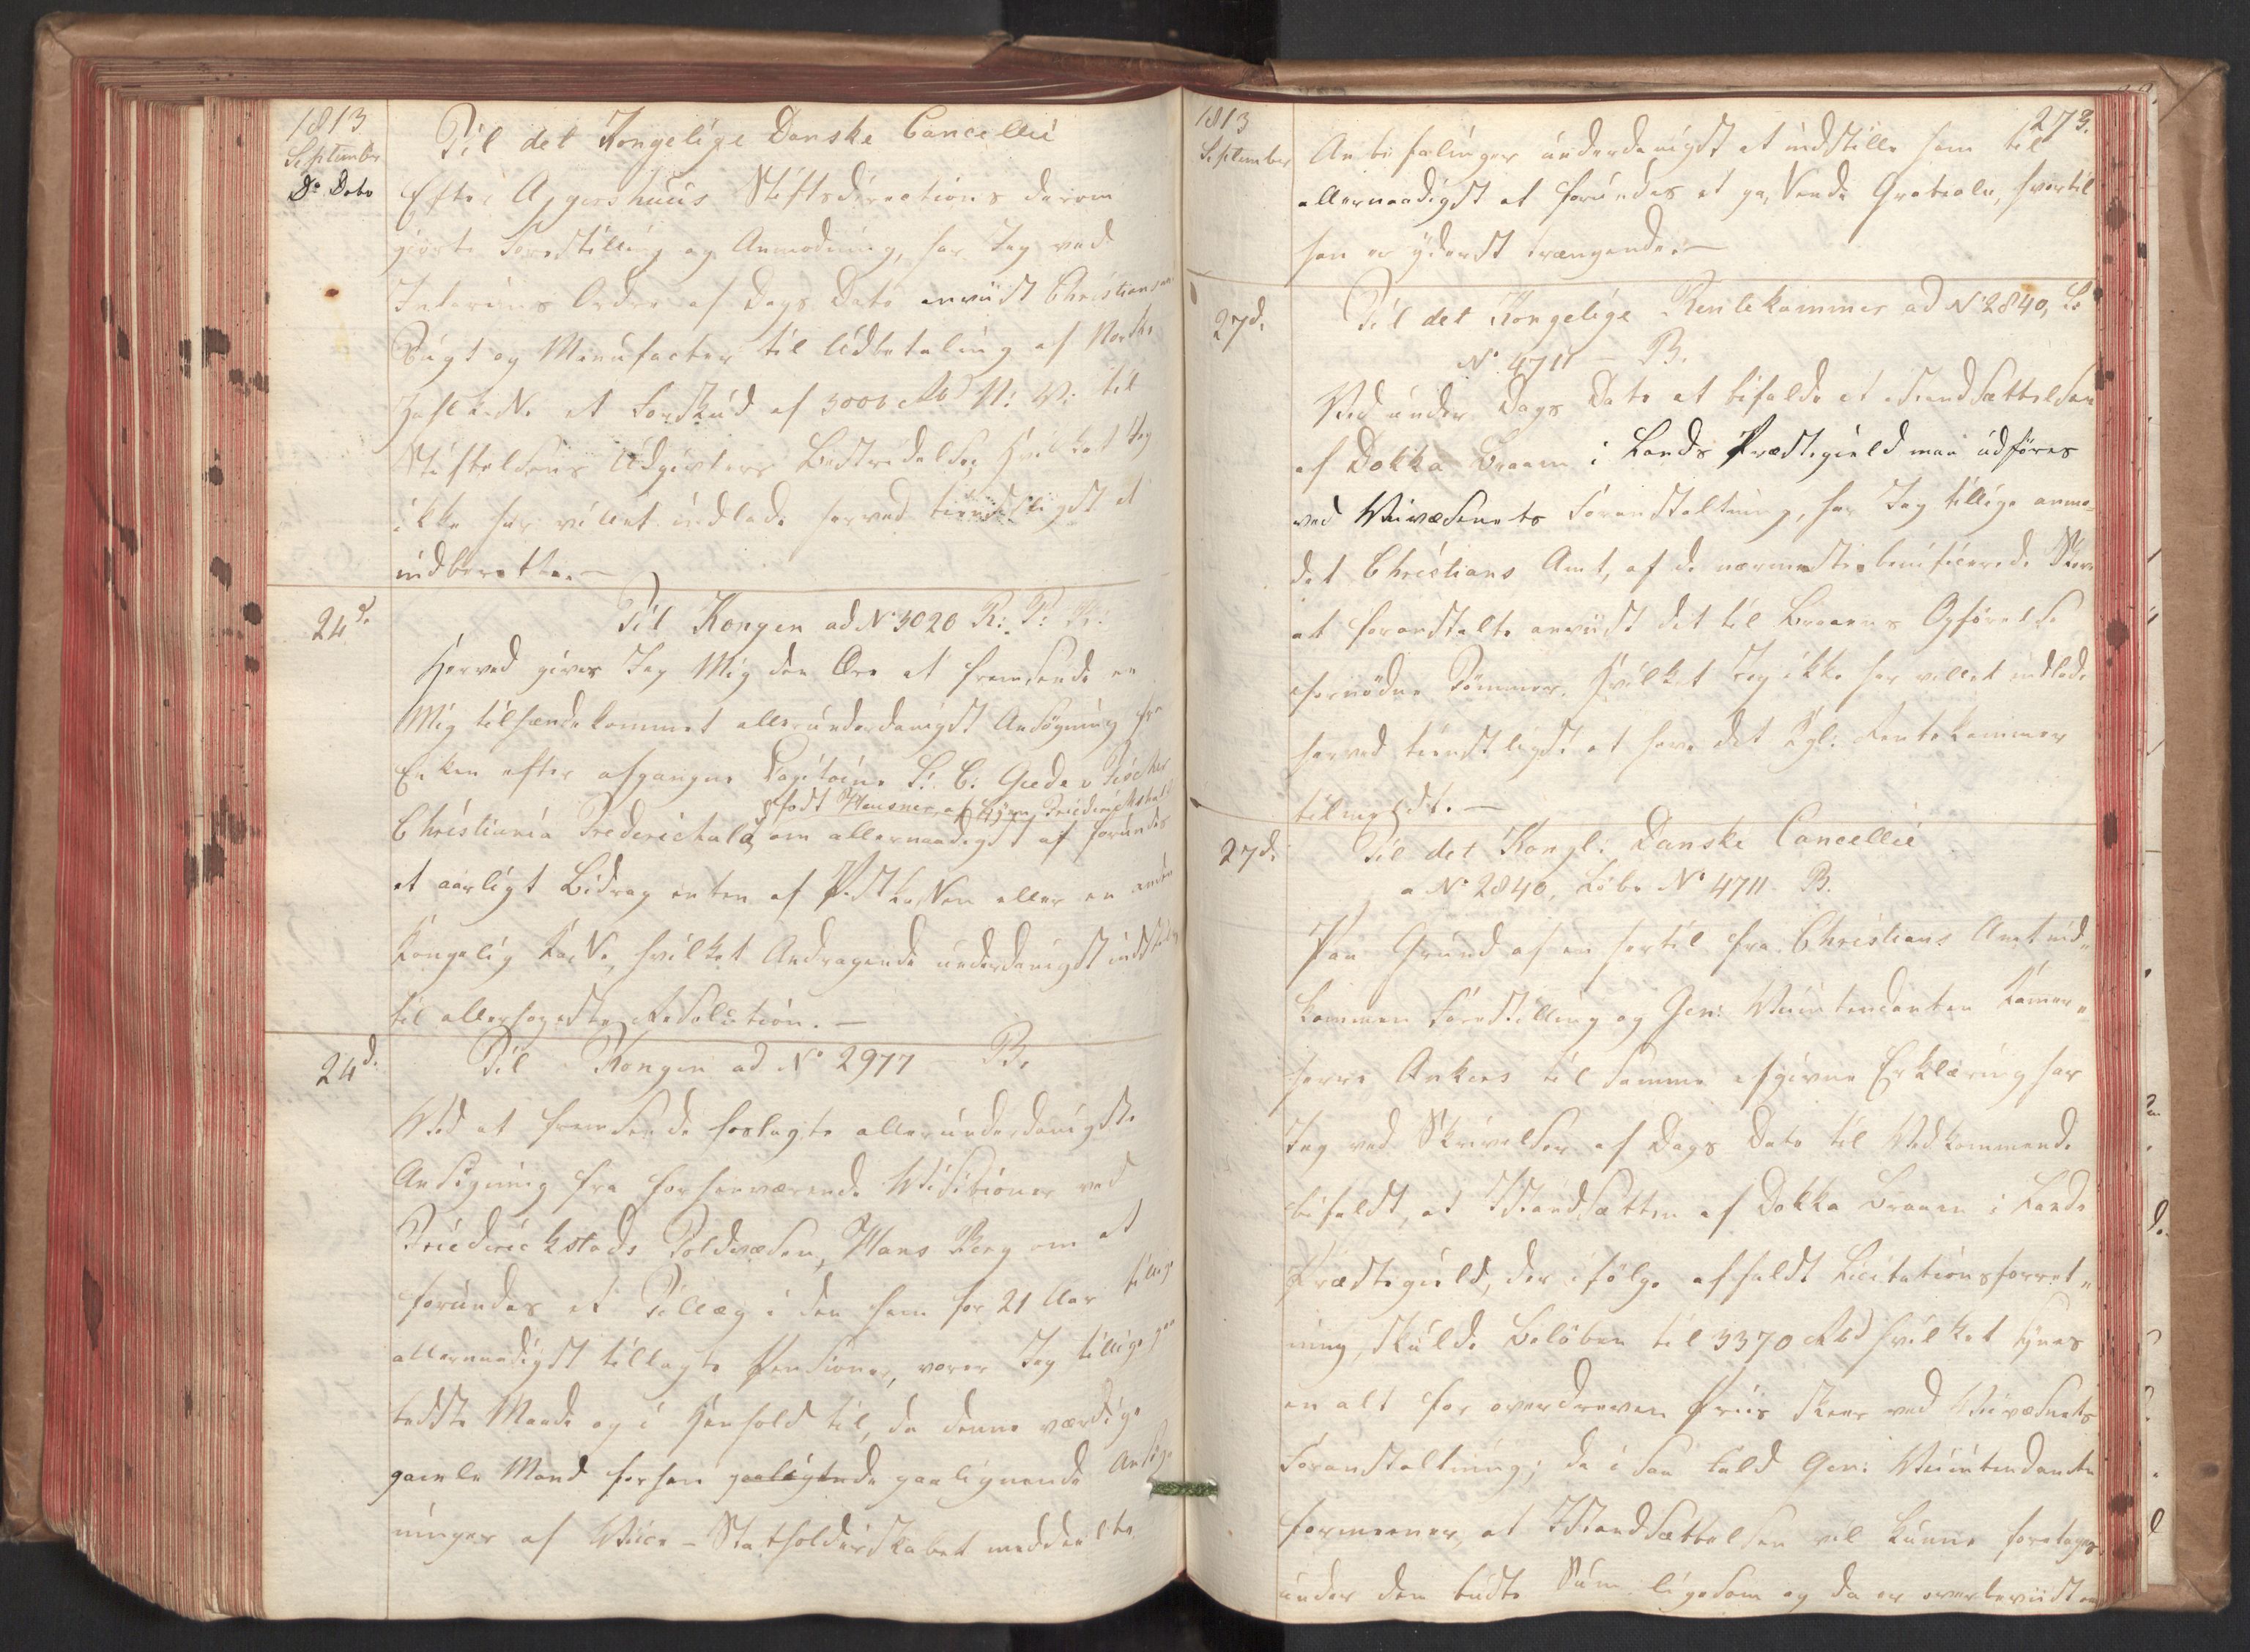 1813
September
Do Dato
Til det Kongelige Danske Cancellie
Efter Aggershuus Stiftsdirections derom
giorte Forestilling og Anmodning, har Jeg ved
Interims Ordre af Dags Dato anviist Christiansands
Tugt og Manufactur til Udbetaling af
et Forskud af 3000 Rbd N: V: til
Stiftelsens Udgivters Bestridelse, hvilket Jeg
ikke har villet undlade herved tienstligst at
indberette.
24d.
Til Kongen ad No 3020 R: P: K:
Herved giver Jeg Mig den Ære at fremsende en
Mig tilhændekommet allerunderdanigst Ansøgning fra
Enken efter afgangne Capitaine P: C: Giede v Fischer
født Heusner, af Byen Friderichshald
Christiania Frederichald, om allernaadigst at forundes
et aarligt Bidrag enten af Postkassen eller en anden
Kongelig Kasse, hvilket Andragende underdanigst indstilles
til allerhøyeste Resolution.
24d.
Til Kongen ad No 2977 B.
Ved at fremsende hoslagte allerunderdanigste
Ansøgning fra forhenværende Visitioner ved
Friederichstads Toldvæsen, Hans Berg om at
forundes et Tillæg i den ham for 21 Aar
allernaadigst tillagte Pension, vover Jeg tillige paa
bedste Maade og i Henhold til, de denne værdige
gamle Mand forhen paalignende Ansøg-
ninger af Vice-Statholderskabet meddeelte
1813
September
273.
Anbefalinger underdanigst at indstille ham til
allernaadigst at forundes et passende Gratiale, hvortil
han er yderst trængende.
27d.
Til det Kongelige Rentekammer ad No 2840, L:
No 4711 - B.
Ved under Dags Dato at bifalde at Istandsættelsen
af Dokka Broen i Lands Præstegield maa udføres
ved Veivæsenets Foranstaltning, har Jeg tillige anmo-
det Christians Amt, af de nærmeste beneficerede Skove
at foranstalte anviist det til Broens Opførelse
fornødne Tømmer. Hvilket Jeg ikke har villet undlade
herved tienstligst at have det Kgl: Rentekammer
tilmeldt.
27d.
Til det Kongl. Danske Cancellie
a No 2840, Løbe No 4711 B.
Paa Grund af en hertil fra Christians Amt ind-
kommen Forestilling og Gen: Veiintendanten Kamer-
herre Ankers til samme afgivne Erklæring har
Jeg ved Skrivelser af Dags Dato til Vedkommende
bifaldt, at Istandsætten af Dokka Broen i Lands
Præstegield, der ifølge afholdt Licitationsforret-
ning, skulde beløbe til 3370 Rbd hvilket synes
en alt for overdreven Priis skeer ved Veivæsnets
Foranstaltning; da i saa Fald Gen: Veiintendanten
formeener, at Istandsættelsen vil kunne foretages
under den budte Sum ligesom og da er overbeviist om